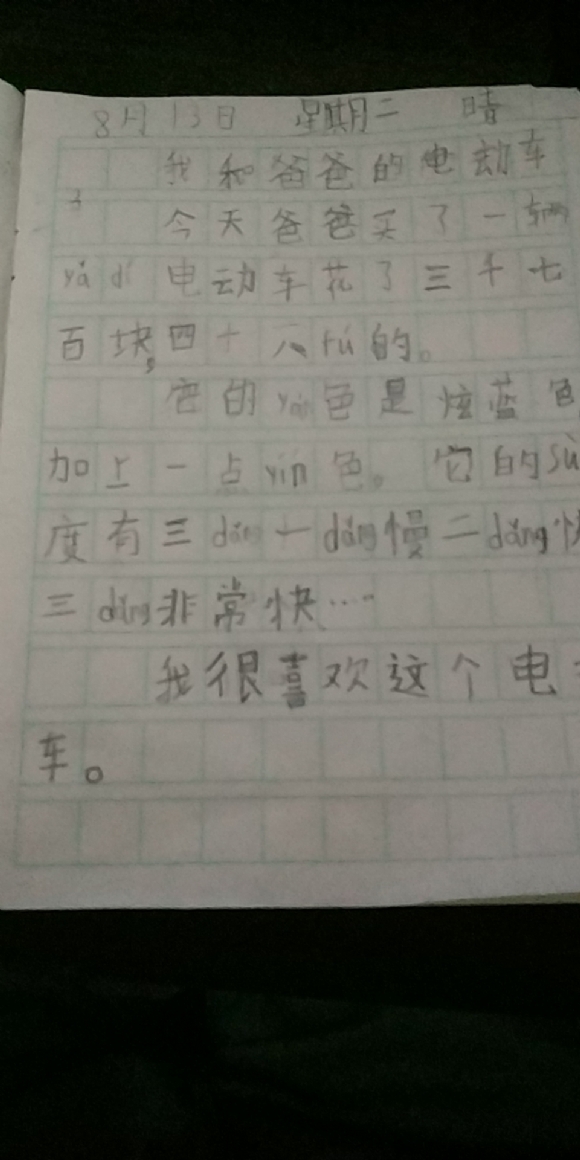 8月13日 星期二 晴
我和爸爸的电动车
今天爸爸买了一辆
yǎ dí 电动车花了三千七
百块,四十八rú的。
它的yán色是炫蓝色
加上一点yín色。它的sù
度有三dǎng一dǎng慢二dǎng快
三dǎng非常快……
我很喜欢这个电
车。